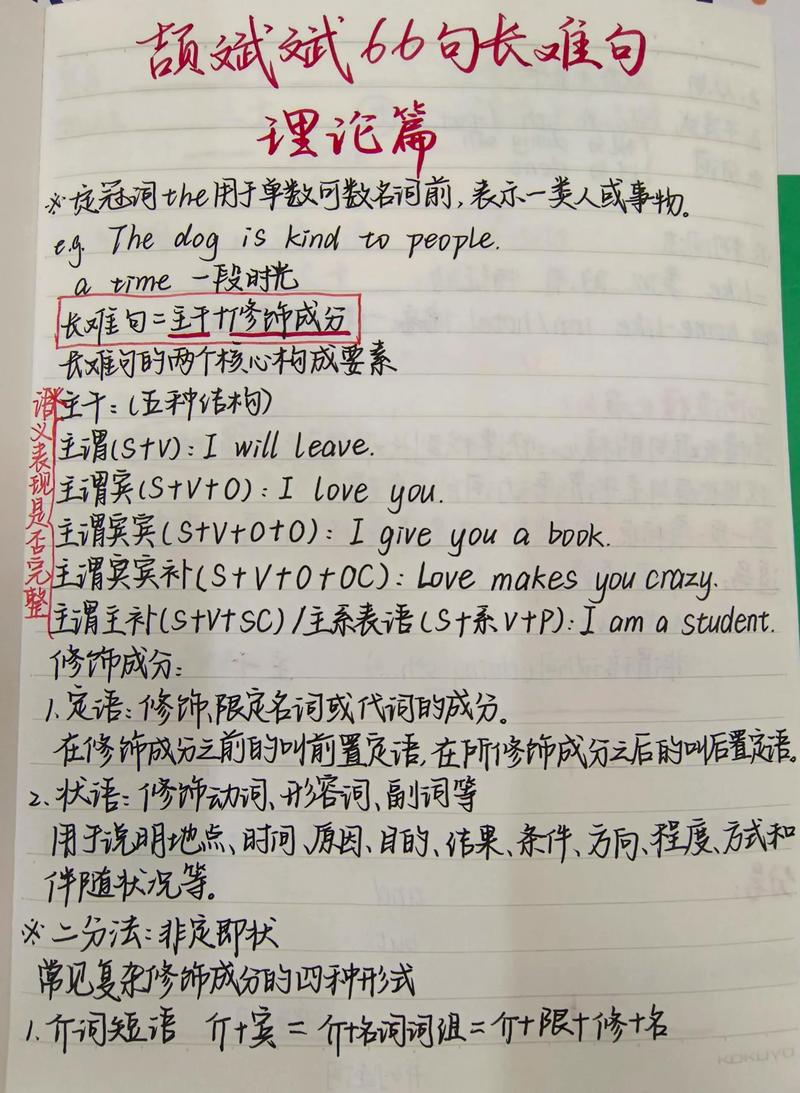 颉斌斌66句长难句
理论篇
※定冠词the用于单数可数名词前,表示一类人或事物。
e.g. The dog is kind to people.
a time 一段时光
长难句=主干+修饰成分
长难句的两个核心构成要素
语义表现是否完整
主干:(五种结构)
主谓(S+V):I will leave.
主谓宾(S+V+O):I love you.
主谓宾宾(S+V+O+O):I give you a book.
主谓宾宾补(S+V+O+OC):Love makes you crazy.
主谓主补(S+V+SC)/主系表语(S+系V+P):I am a student.
修饰成分:
1.定语:修饰、限定名词或代词的成分。
在修饰成分之前的叫前置定语,在所修饰成分之后的叫后置定语。
2.状语:修饰动词、形容词、副词等
用于说明地点、时间、原因、目的、结果、条件、方向、程度、方式和
伴随状况等。
※二分法:非定即状
常见复杂修饰成分的四种形式
1.介词短语 介+宾=介+名词词组=介+限+修+名
KOKUYO